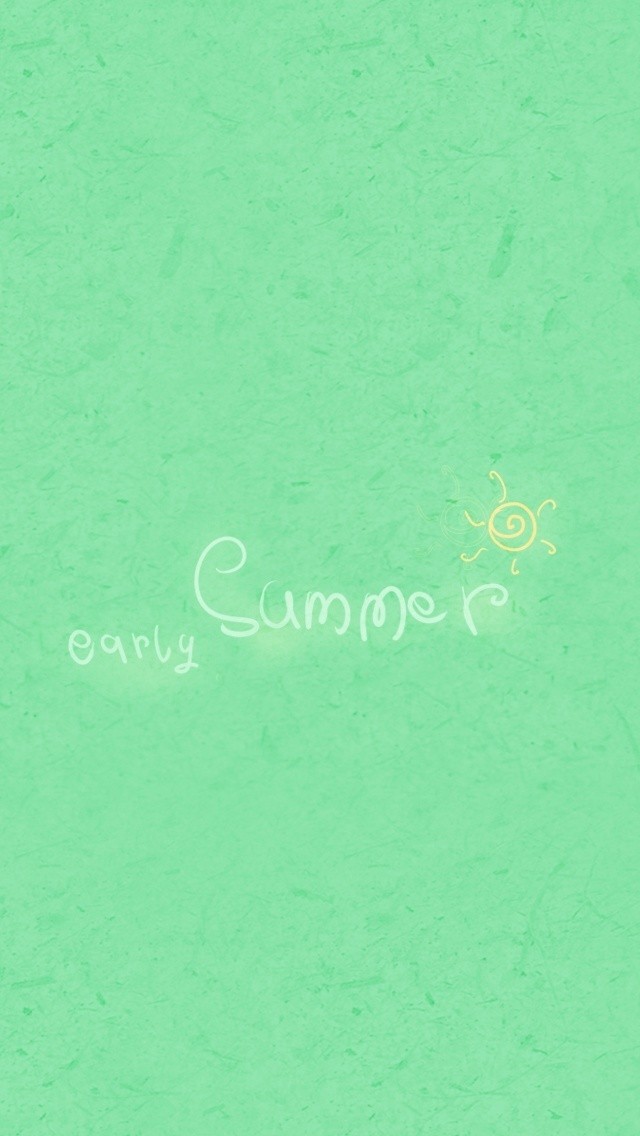 early Summer